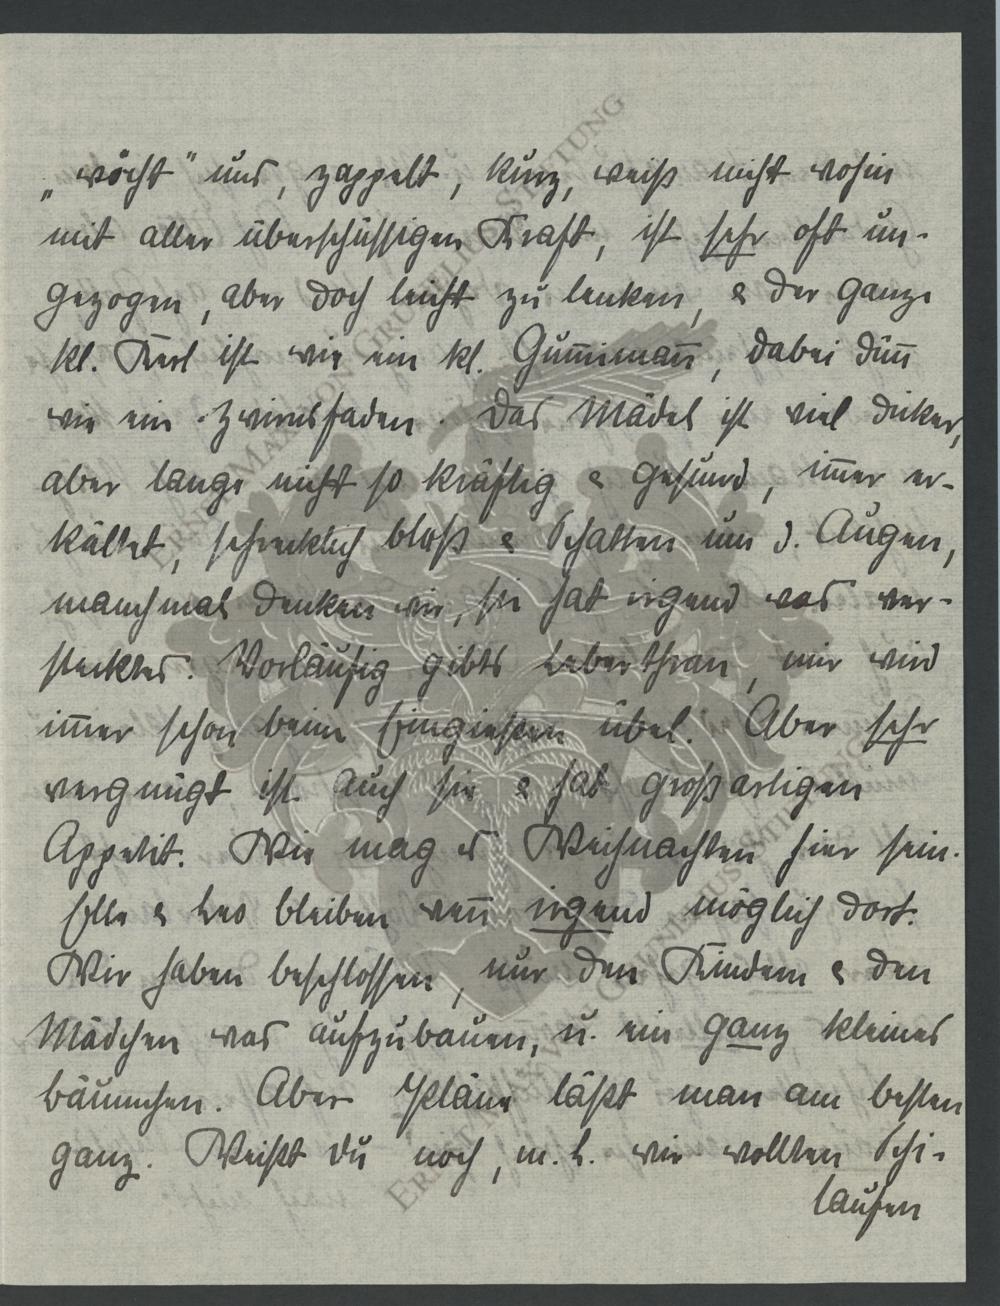 „wöcht" uns, zappelt, kurz, weiß nicht wohin
mit aller überschüssigen Kraft, ist sehr oft un-
gezogen, aber doch leicht zu lenken, & der ganze
kl. Kerl ist wie ein kl. Gum̅iman̅, dabei dün̅
wie ein Zwirnsfaden. Das Mädel ist viel dicker,
aber lange nicht so kräftig & gesund, im̅er er-
kältet, schrecklich blaß & Schatten um d. Augen,
manchmal denken wir, sie hat irgend was ver-
stecktes. Vorläufig gibts Leberthran, mir wird
im̅er schon beim Eingießen übel. Aber sehr
vergnügt ist auch sie & hat großartigen
Appetit. Wie mag es Weihnachten hier sein.
Elle & Leo bleiben wen̅ irgend möglich dort.
Wir haben beschlossen, nur den Kindern & den
Mädchen was aufzubauen, u. ein ganz kleines
bäumchen. Aber Pläne läßt man am besten
ganz. Weißt du noch, m. L. wie wollten Schi-
laufen
ERNST MAX VON GRUNELIUS-STIFTUNG
ERNST MAX VON GRUNELIUS-STIFTUNG